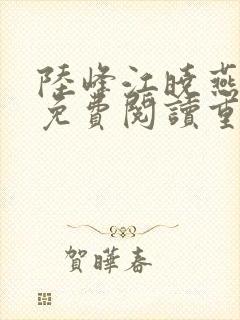 陸峰江曉燕
免費閱讀重
賀曄春